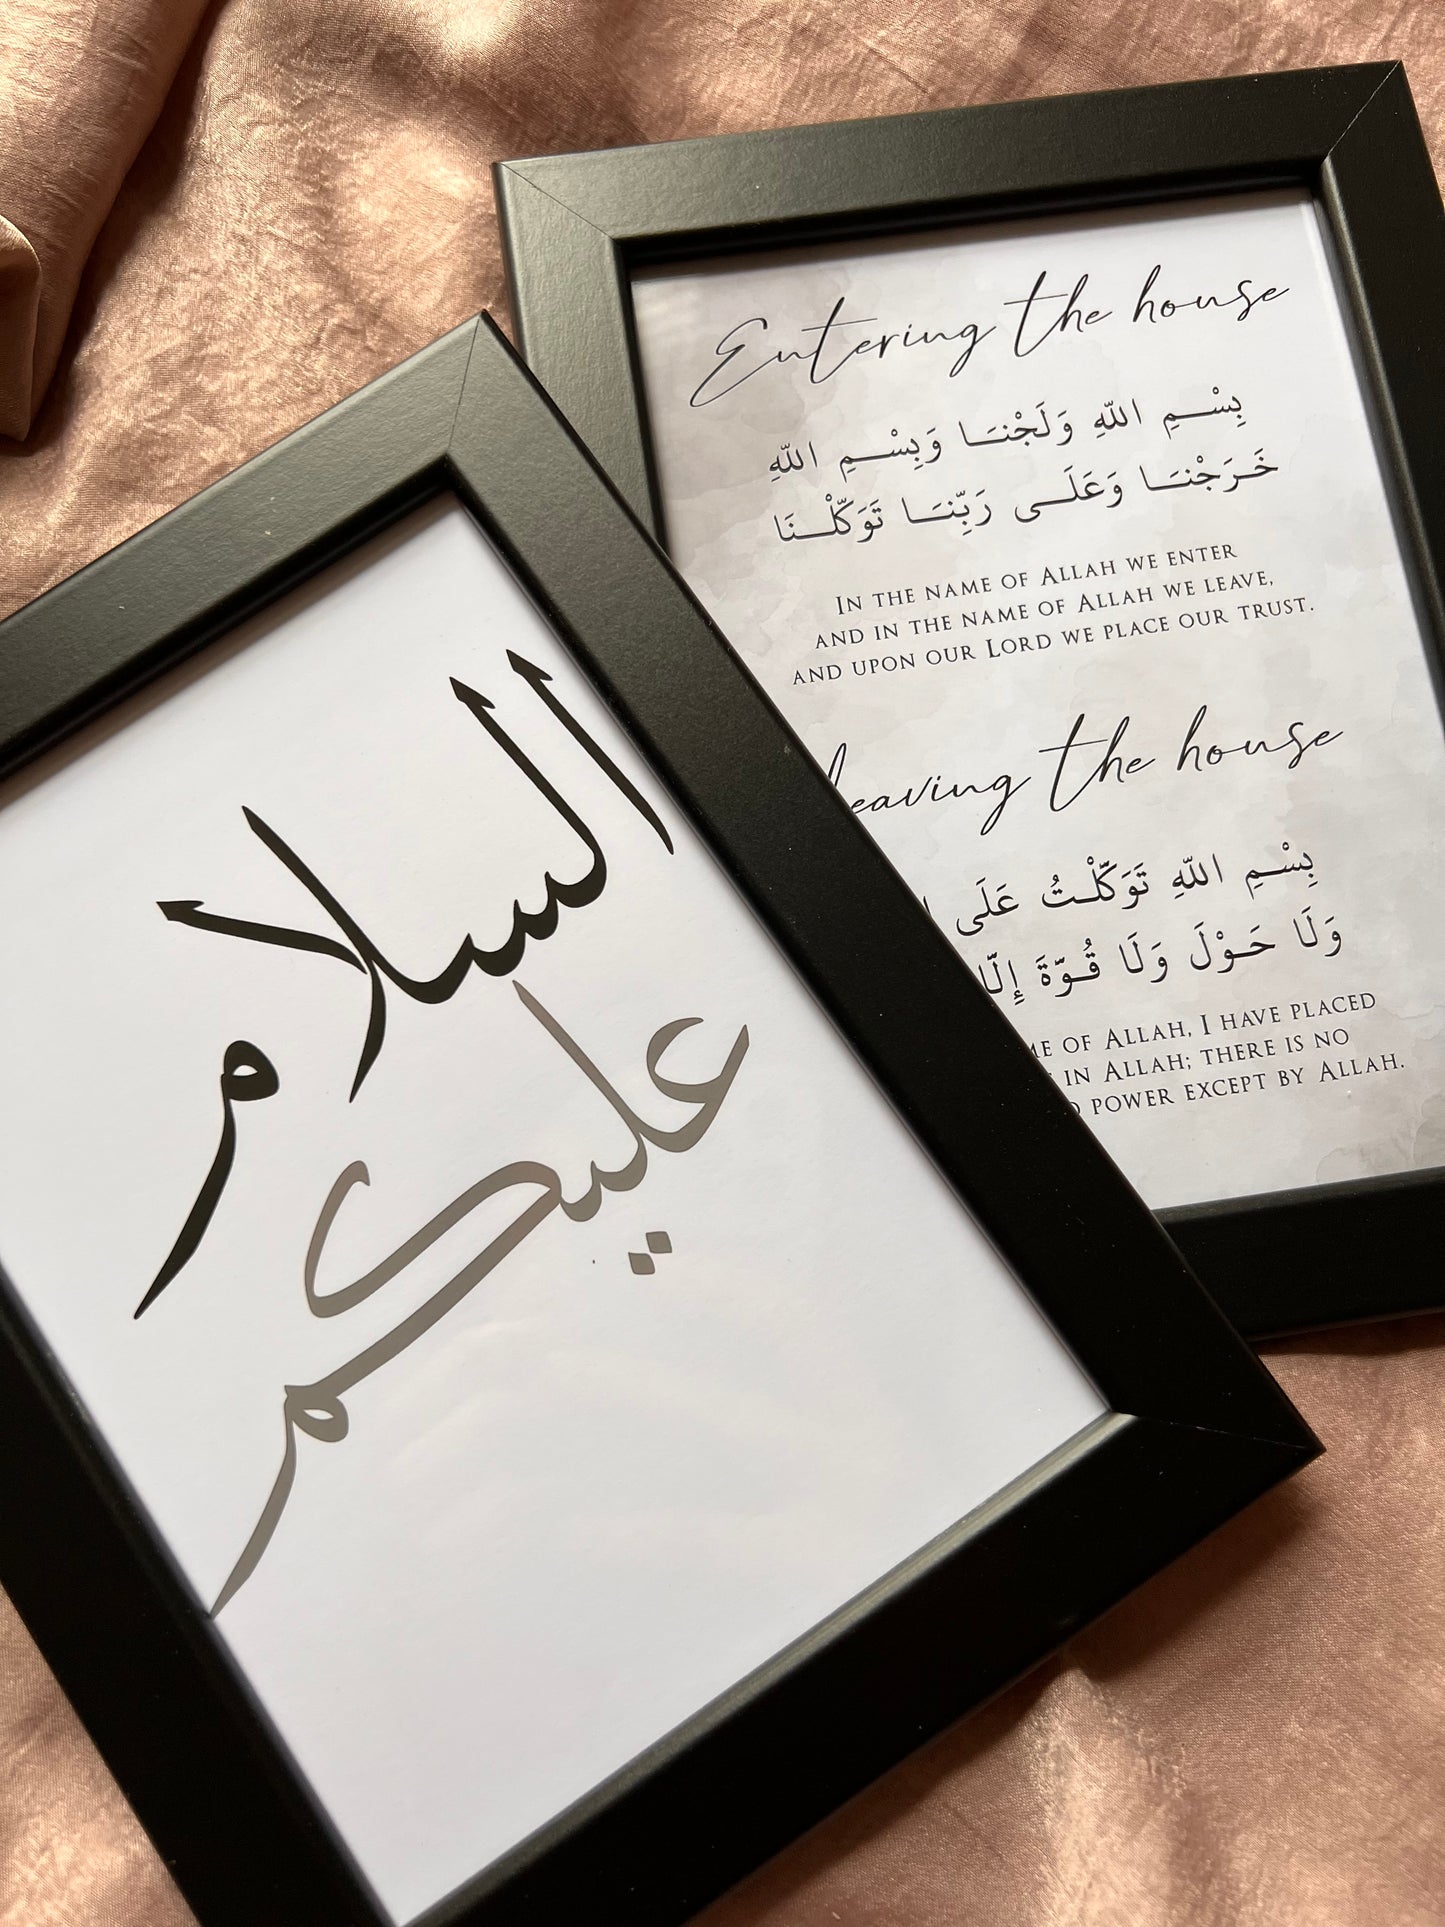 السلام
عليكم
Entering the house
بِسْمِ اللّهِ وَلَجْنَا وَبِسْمِ اللّهِ
خَرَجْنَا وَعَلَى رَبِّنَا تَوَكَّلْنَا
IN THE NAME OF ALLAH WE ENTER
AND IN THE NAME OF ALLAH WE LEAVE,
AND UPON OUR LORD WE PLACE OUR TRUST.
leaving the house
بِسْمِ اللّهِ تَوَكَّلْتُ عَلَى
وَلَا حَوْلَ وَلَا قُوَّةَ إِلَّا
OF ALLAH, I HAVE PLACED
IN ALLAH; THERE IS NO
POWER EXCEPT BY ALLAH.